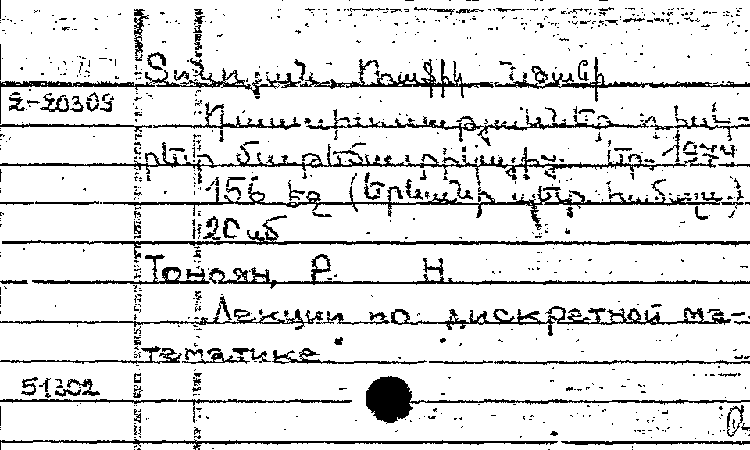 Տոնոյան, Ռաֆիկ Նշանի
2-20309
Դասախոսություններ դիսկ-
րետ մաթեմատիկայից. Եր. 1974
156 էջ (Երևանի պետ. համալս.)
20 սմ
Тоноян, Р. Н.
Лекции по дискретной ма-
тематике
51302